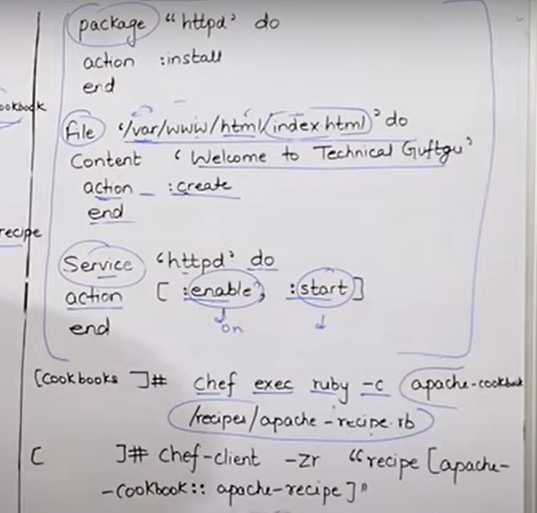 package "httpd" do
action :install
end
ookbook
file '/var/www/html/index.html' do
Content 'Welcome to Technical Guftgu'
action :create
end
recipe
Service 'httpd' do
action [ :enable, :start ]
on
end
[cookbooks ]# chef exec ruby -c apache-cookbook
/recipes/apache-recipe.rb
[ ]# chef-client -zr "recipe [apache-
-cookbook:: apache-recipe]"